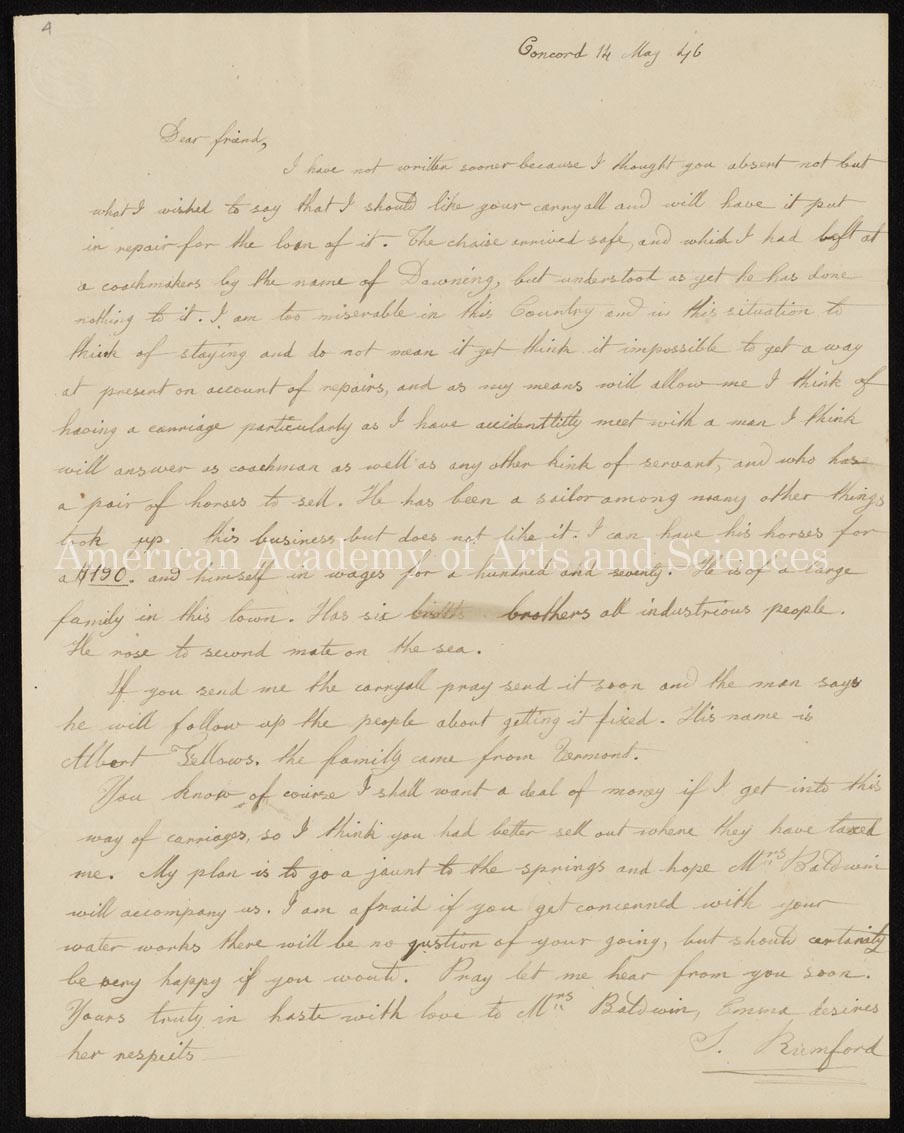 4
Concord 14 May 46
Dear friend,
I have not written sooner because I thought you absent not but
what I wished to say that I should like your carryall and will have it put
in repair for the loan of it. The chaise arrived safe, and which I had left at
a coachmakers by the name of Downing, but understood as yet he has done
nothing to it. I am too miserable in this Country and in this situation to
think of staying and do not mean it yet think it impossible to get a way
at present on account of repairs, and as my means will allow me I think of
having a carriage particularly as I have accidentlitty meet with a man I think
will answer as coachman as well as any other kink of servant, and who has
a pair of horses to sell. He has been a sailor among many other things
took up this business but does not like it. I can have his horses for
American Academy of Arts and Sciences
a $190. and himself in wages for a hundred and seventy. He is of a large
family in this town. Has six brothers all industrious people.
He rose to second mate on the sea.
If you send me the carryall pray send it soon and the man says
he will follow up the people about getting it fixed. His name is
Albert Fellows. the family came from Vermont.
You know of course I shall want a deal of money if I get into this
way of carriages, so I think you had better sell out where they have taxed
me. My plan is to go a jaunt to the springs and hope Mrs Baldwin
will accompany us. I am afraid if you get concerned with your
water works there will be no qustion of your going, but should certainly
be very happy if you would. Pray let me hear from you soon.
Yours truly in haste with love to Mrs Baldwin, Emma desires
her respects
S. Rumford